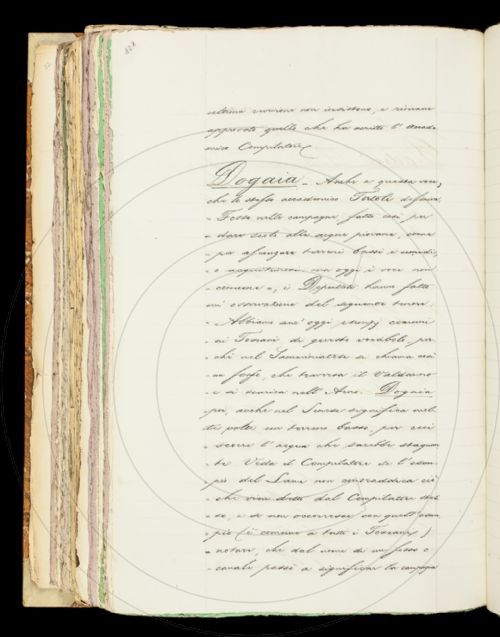 ultima non insistono, e rimane
approvato quello che ha scritto l'Accade-
mico Compilatore
Dogaia - Anche a questa voce,
che lo stesso accademico Tortoli definiva
- Fossa nelle campagne, fatta così per
- dare esito alle acque piovane, come
- per asciugare terreni bassi e umidi,
- o acquitrinosi - ma oggi è voce non
- comune -, i Deputati hanno fatta
un' osservazione del seguente tenore.
- Abbiamo anc' oggi esempj comuni
- ai Toscani di questo vocabolo, per-
- chè nel Samminiatese si chiama così
- un fosso, che traversa il Valdarno
- e si scarica nell' Arno. Dogaia
- poi, anche nel significa mol-
te volte un terreno basso, per cui
- scorre l' acqua che sarebbe stagnan-
- te. Veda il Compilatore se l' esem-
- pio del Lami non contraddica ciò
- che vien detto dal Compilatore stes-
- so, e se non occorresse con quell' esem-
- pio (è comune a tutti i Toscani)
- notare, che dal nome di un fosso o
- canale passò a significar la campagna